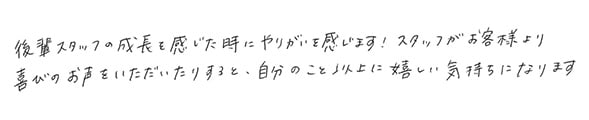 後輩スタッフの成長を感じた時にやりがいを感じます！スタッフがお客様より
喜びのお声をいただいたりすると、自分のこと以上に嬉しい気持ちになります